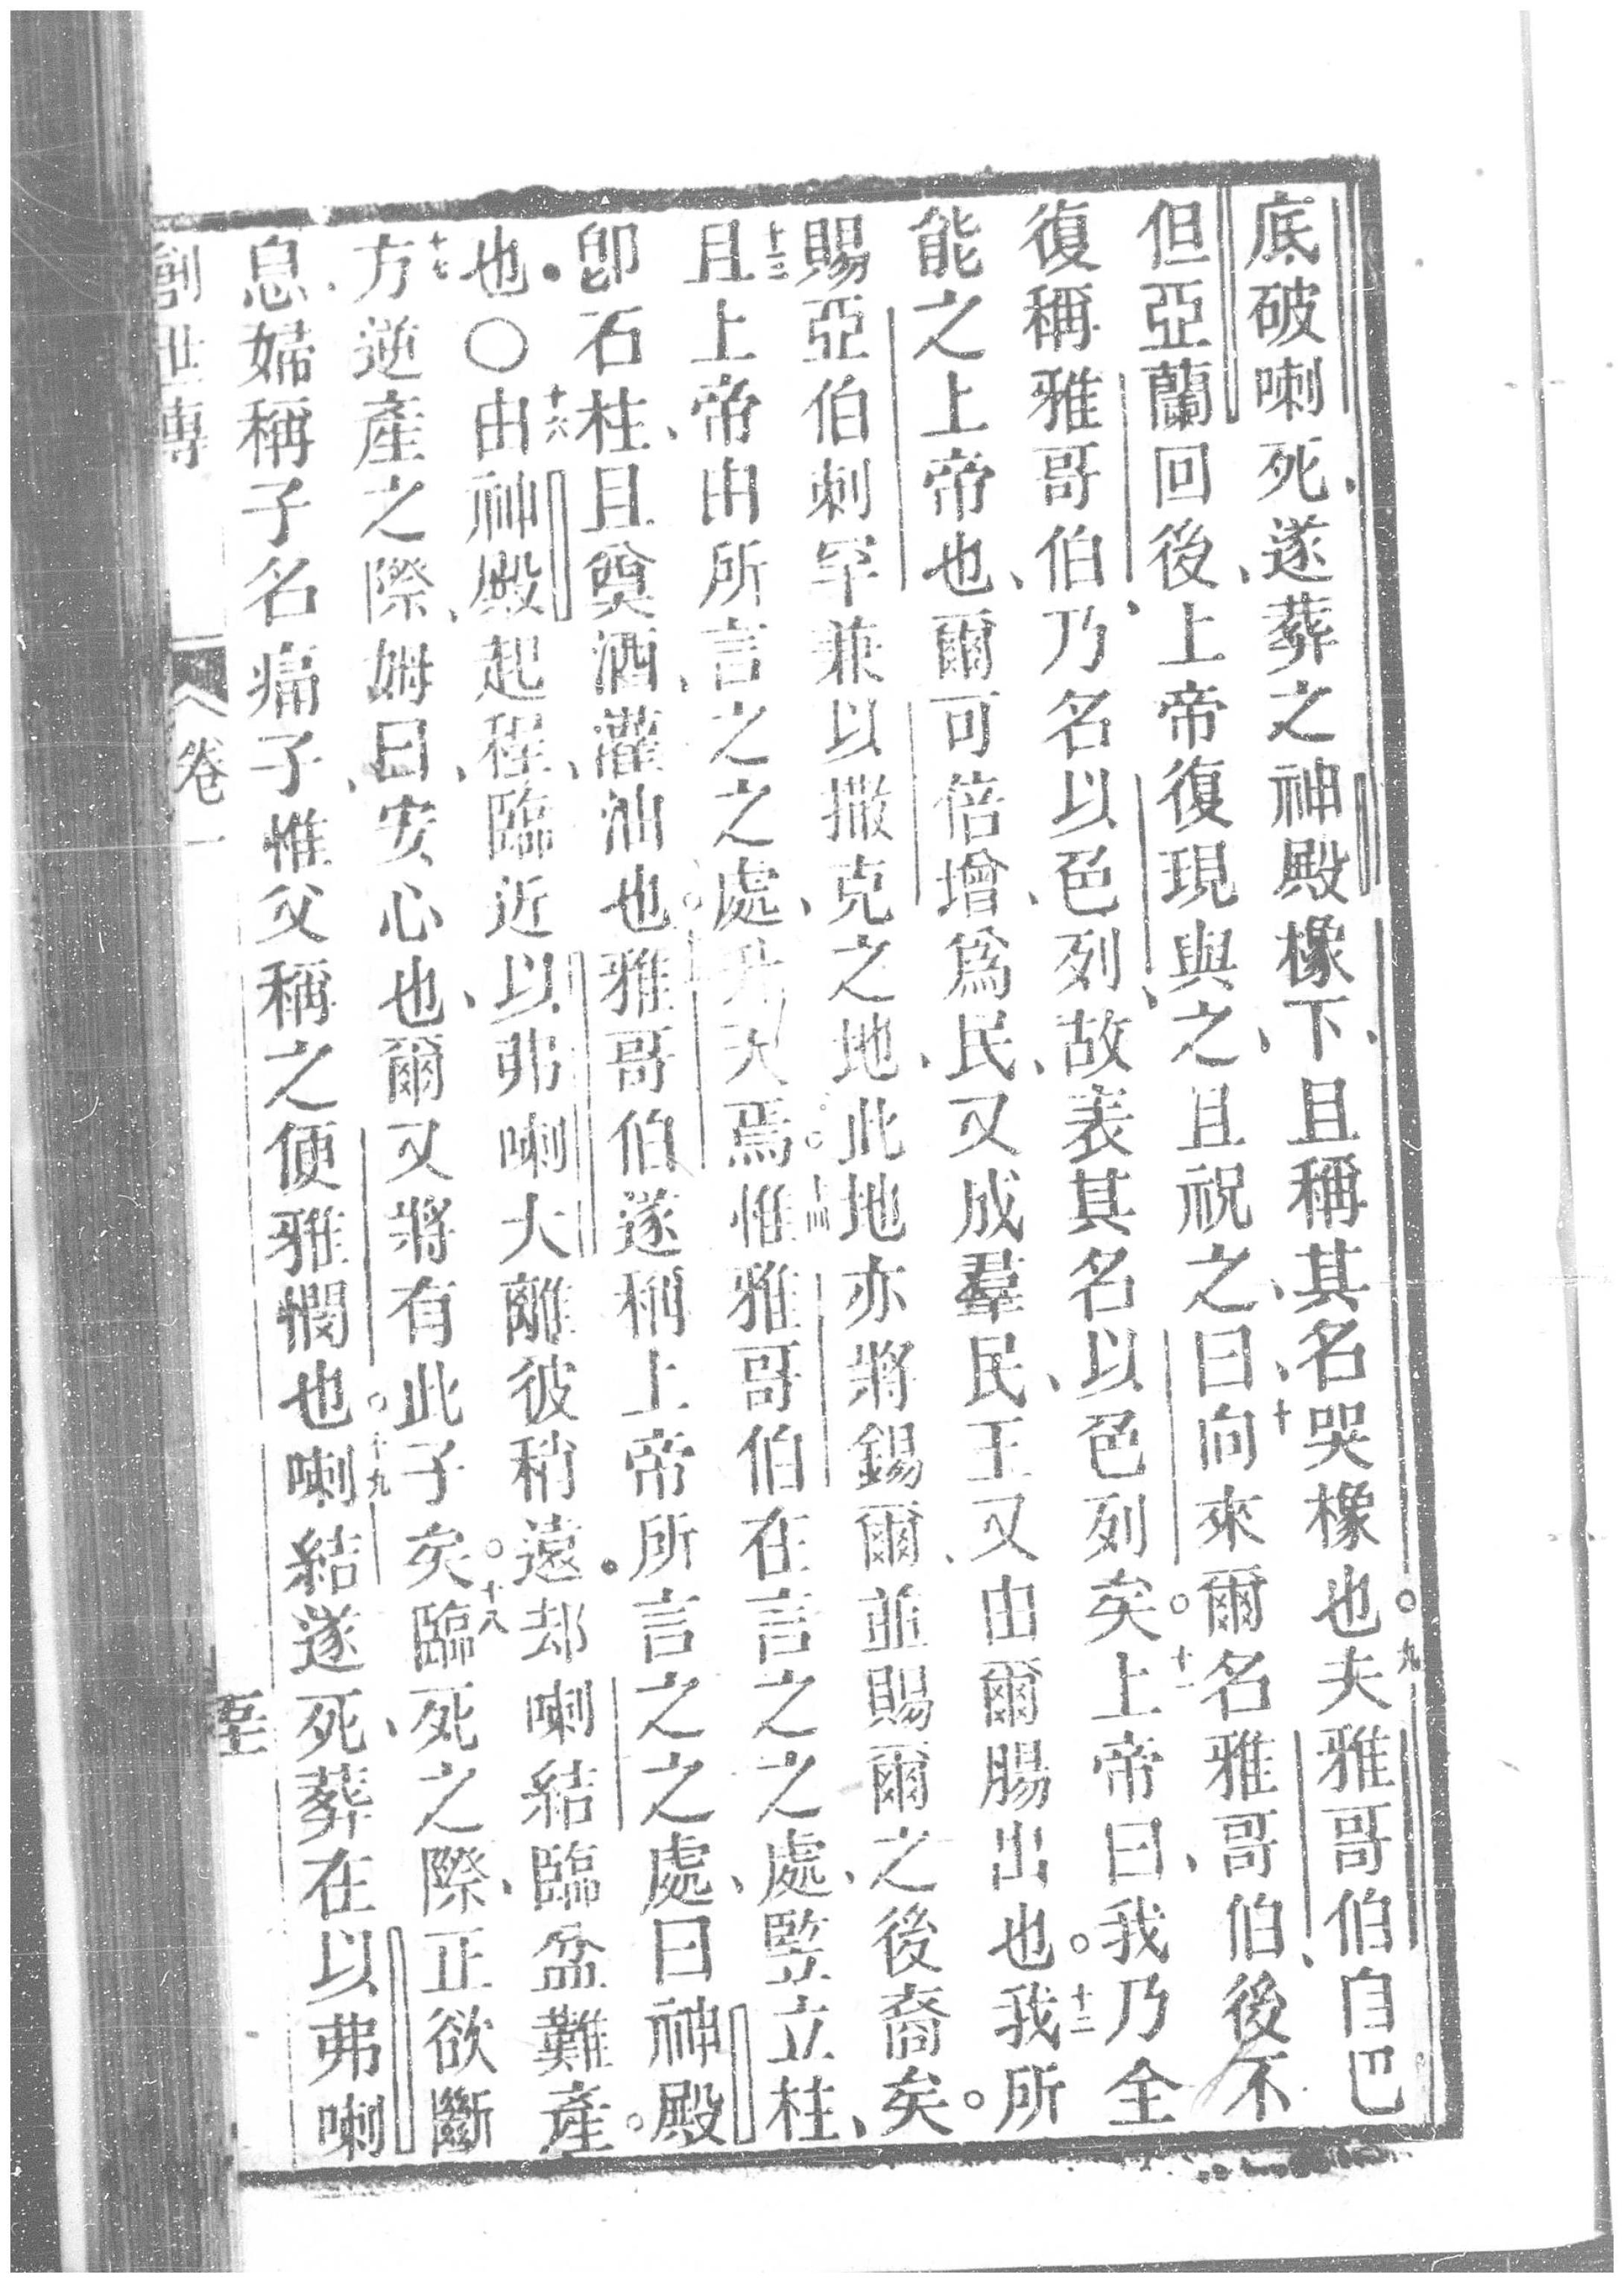 底破喇死、遂葬之神殿橡下、且稱其名哭橡也。九夫雅哥伯自巴
但亞蘭回後、上帝復現與之、且祝之、曰、十向來爾名雅哥伯、後不
復稱雅哥伯、乃名以色列、故表其名以色列矣。十一上帝曰、我乃全
能之上帝也、爾可倍增、爲民、又成羣民、王又由爾腸出也。十二我所
賜亞伯刺罕兼以撒克之地、此地亦將錫爾、並賜爾之後裔矣。
十三且上帝由所言之之處、升天焉。十四惟雅哥伯在言之之處、竪立柱、
卽石柱、且奠酒、灌油也。十五雅哥伯遂稱上帝所言之之處、曰神殿
也。○十六由神殿起程、臨近以弗喇大、離彼稍遠、却喇結臨盆難產。
十七方逆產之際、姆曰、安心也、爾又將有此子矣。十八臨死之際、正欲斷
息、婦稱子名痛子、惟父稱之便雅憫也。十九喇結遂死、葬在以弗喇
創世傳 卷一